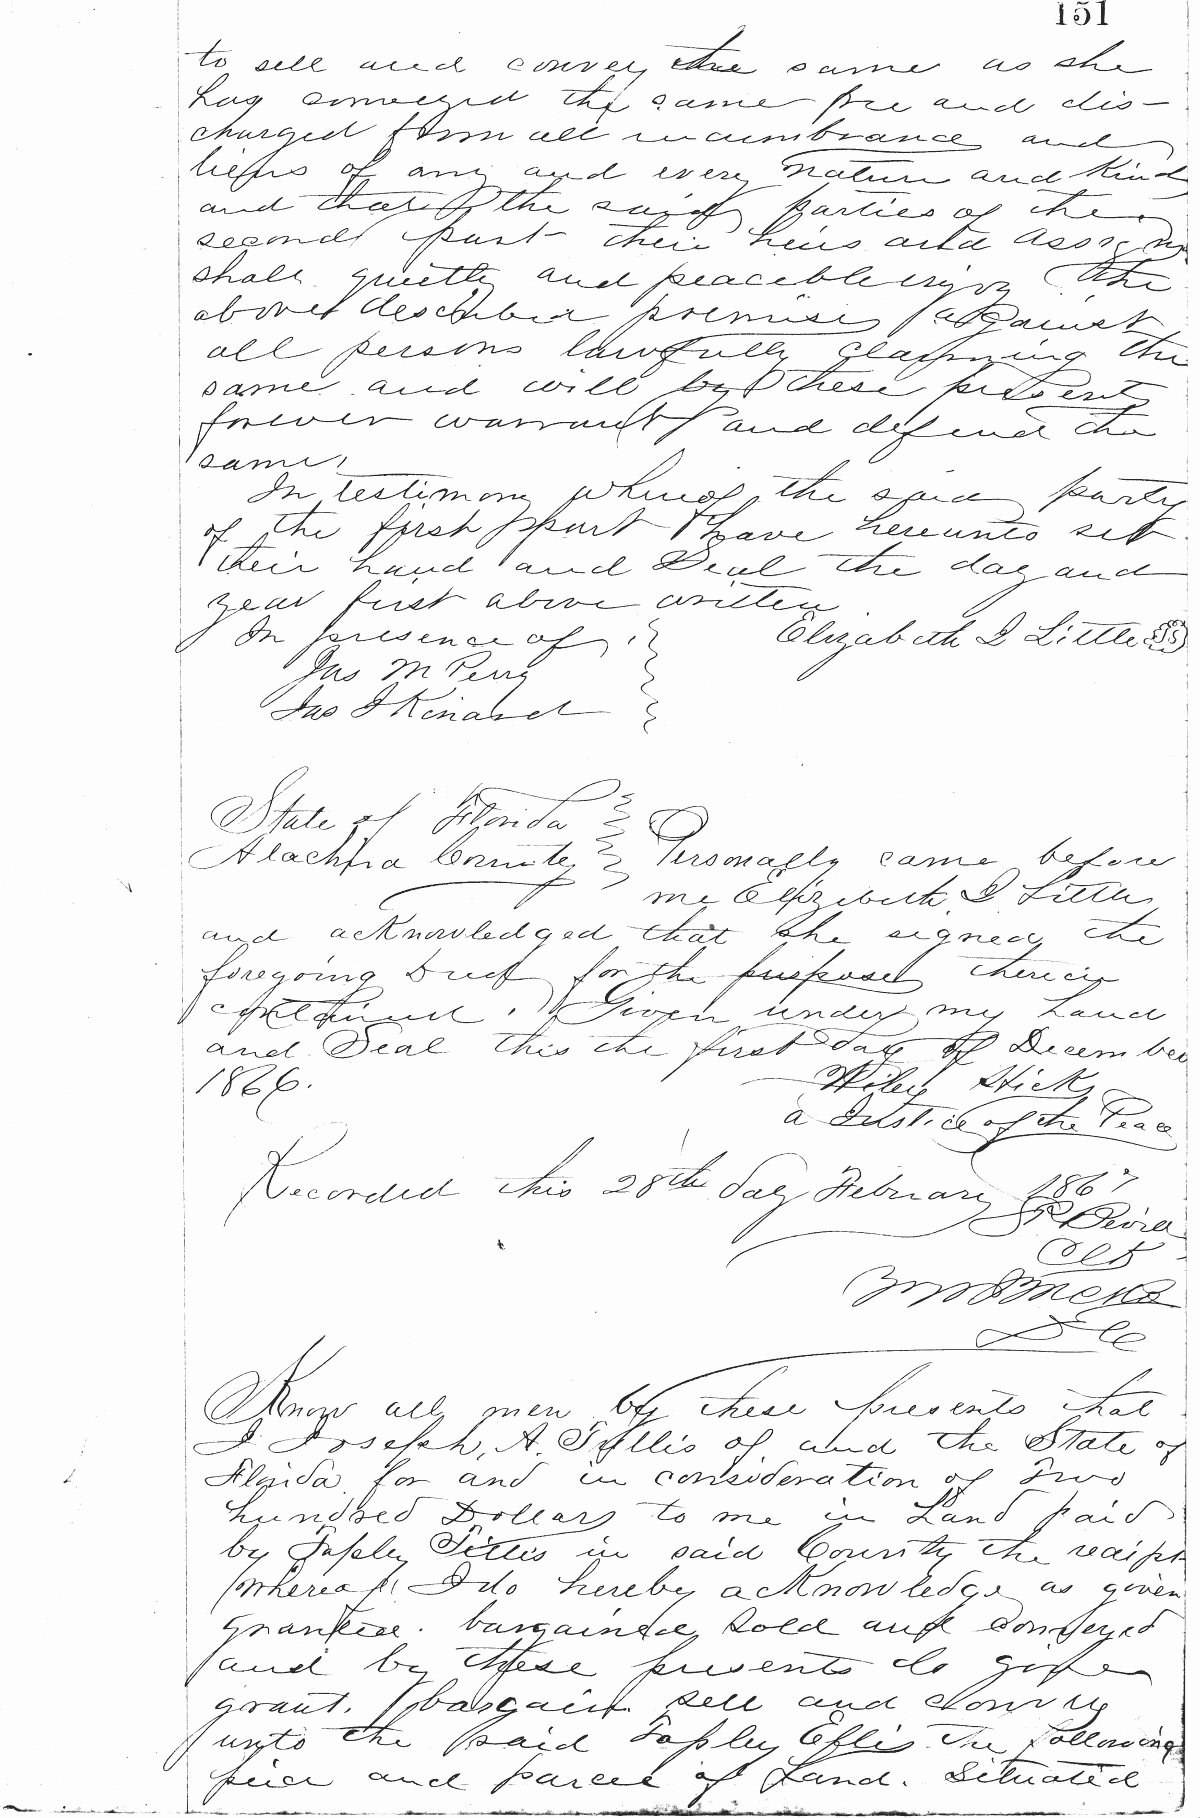 151
to sell and convey the same as she
has conveyed the same free and dis-
charged from all incumbrance and
liens of any and every nature and kind
and that the said parties of the
second part their heirs and assigns
shall quietly and peaceble enjoy the
above described premises against
all persons lawfully claiming the
same and will by these presents
forever warrant and defend the
same,
In testimony whereof the said party
of the first part have hereunto set
their hand and Seal the day and
year first above written
In presence of Elizabeth I Little
Jas M Perry
Jas I Kinard
State of Florida
Alachua County Personally came before
me Elizabeth I Little
and acknowledged that she signed the
foregoing Deed for the purposes therein
contained. Given under my hand
and Seal this the first day of December
1866. Wiley Hicks
a Justice of the Peace
Recorded this 28th day February 1867
Clk
DC
Know all men by these presents that
I Joseph A. Tillis of and the State of
Florida for and in consideration of Two
hundred Dollars to me in hand paid
by Tapley Tillis in said County the receipt
whereof I do hereby acknowledge as given
granted. bargained, sold and conveyed
and by these presents do give
grant. bargain. sell and convey
unto the said Tapley Ellis The following
piece and parcel of Land. Situated